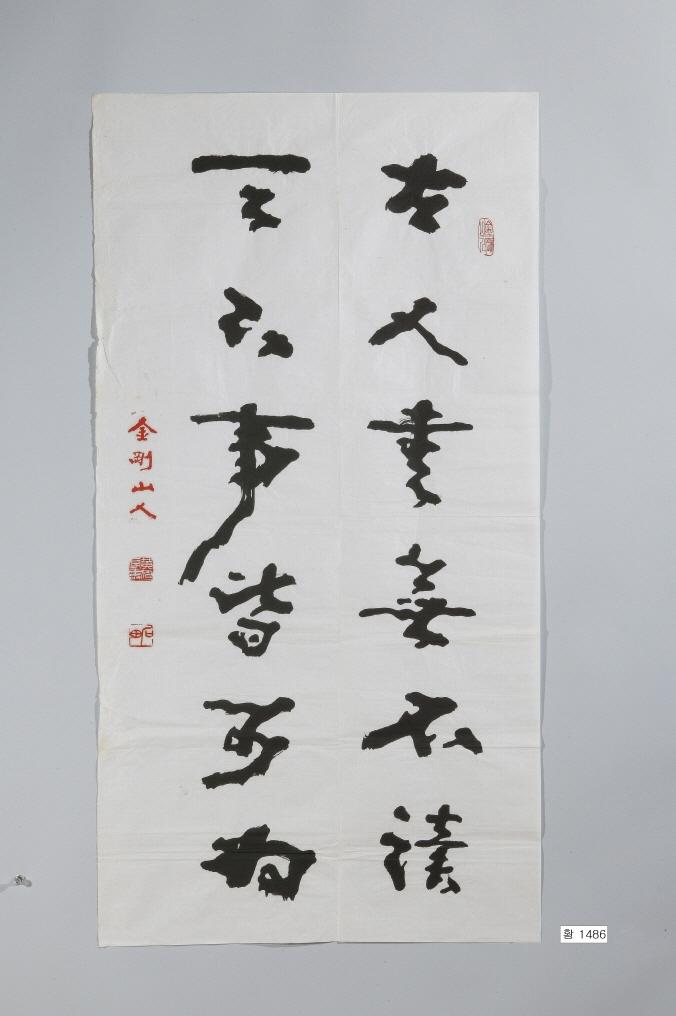 古人書無不讀
天下事皆可為
金剛山人
石田
황 1486